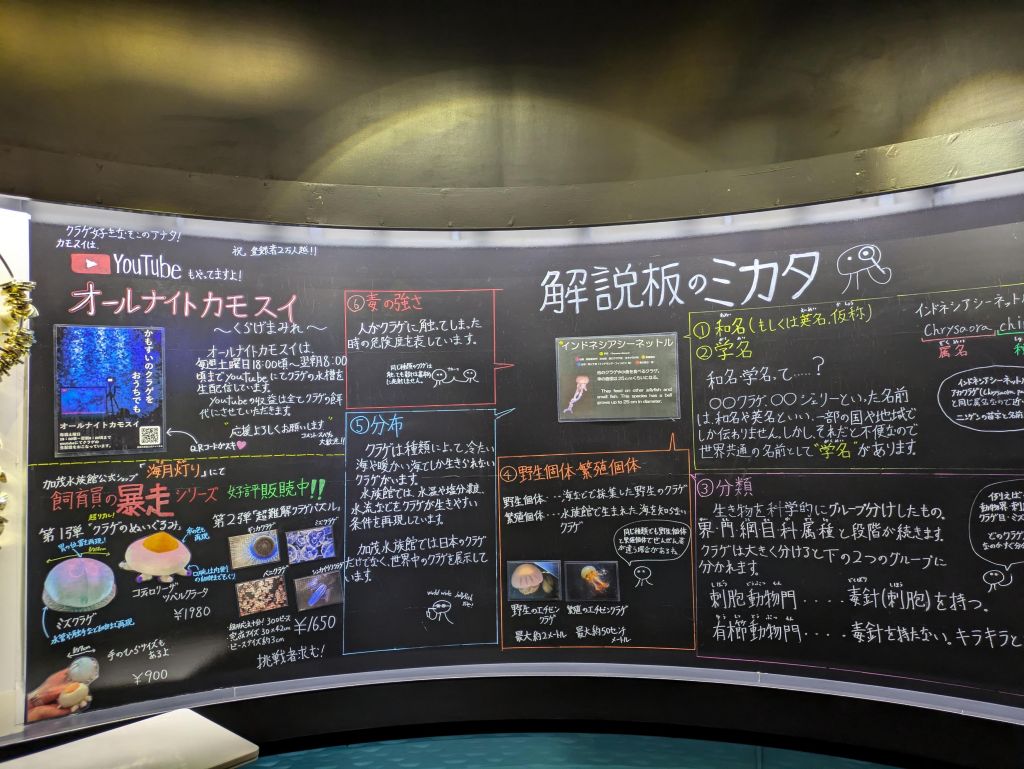 クラゲ好きなそこのアナタ!
カモスイは、
YouTube もやってますよ!
祝 登録者2万人越!!
オールナイトカモスイ
〜くらげまみれ〜
オールナイトカモスイは、
毎週土曜日18:00頃〜翌朝8:00
頃までYouTubeにてクラゲの水槽を
生配信しています。
YouTubeの収益は全てクラゲの餌
代にさせていただきます。
応援よろしくお願いします
QRコードからも
かもすいのクラゲを
おうちでも
オールナイトカモスイ
加茂水族館公式ショップ「海月灯り」にて
飼育員の暴走シリーズ 好評販売中!!
第1弾「クラゲのぬいぐるみ」
ミズクラゲ
コティロリーザ
ツベルクラータ
¥1980
手のひらサイズも
あるよ
¥900
第2弾「超難解クラゲパズル」
ミズクラゲ
ベニクラゲ
300ピース
完成サイズ 30×42cm
ピースサイズ約3cm
¥1650
挑戦者求む!
⑥毒の強さ
人がクラゲに触れてしまった
時の危険度を表しています。
⑤分布
クラゲは種類によって、冷たい
海や暖かい海でしか生きられない
クラゲがいます。
水族館では、水温や塩分濃度、
水流などをクラゲが生きやすい
条件を再現しています。
加茂水族館では日本のクラゲ
だけでなく、世界中のクラゲを展示して
います。
world wide Jellyfish
解説板のミカタ
インドネシアシーネットル
They feed on other jellyfish and
small fish. This species has a bell
grows up to 25 cm in diameter.
④野生個体・繁殖個体
野生個体・・・海などで採集した野生のクラゲ
繁殖個体・・・水族館で生まれた海を知らない
クラゲ
同じ種類でも野生個体
と繁殖個体でぜんぜん
違う場合があるよ。
野生のエチゼン
クラゲ
最大約2メートル
繁殖のエチゼンクラゲ
最大約50センチ
メートル
①和名(もしくは英名、仮称)
②学名
和名・学名って・・・・・?
〇〇クラゲ、〇〇ジェリーといった名前
は、和名や英名といい、一部の国や地域で
しか伝わりません。しかしそれだと不便なので
世界共通の名前として"学名"があります。
インドネシアシーネットル
Chrysaora chi
属名
③分類
生き物を科学的にグループ分けしたもの。
界・門・綱・目・科・属・種と段階が続きます。
クラゲは大きく分けると下の2つのグループに
分かれます。
刺胞動物門・・・・毒針(刺胞)を持つ。
有櫛動物門・・・・・毒針を持たない。キラキラと